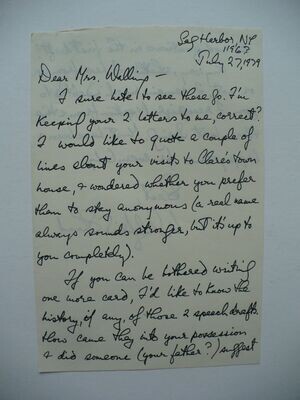 Sag Harbor, NY
11963
July 27, 1979
Dear Mrs. Walling —
I sure hate to see these go. I'm
keeping your 2 letters to me, correct?
I would like to quote a couple of
lines about your visits to Clare's town
house, & wondered whether you prefer
them to stay anonymous (a real name
always sounds stronger, but it's up to
you completely).
If you can be bothered writing
one more card, I'd like to know the
history, if any, of those 2 speech drafts.
How came they into your possession
& did someone (your father?) suggest